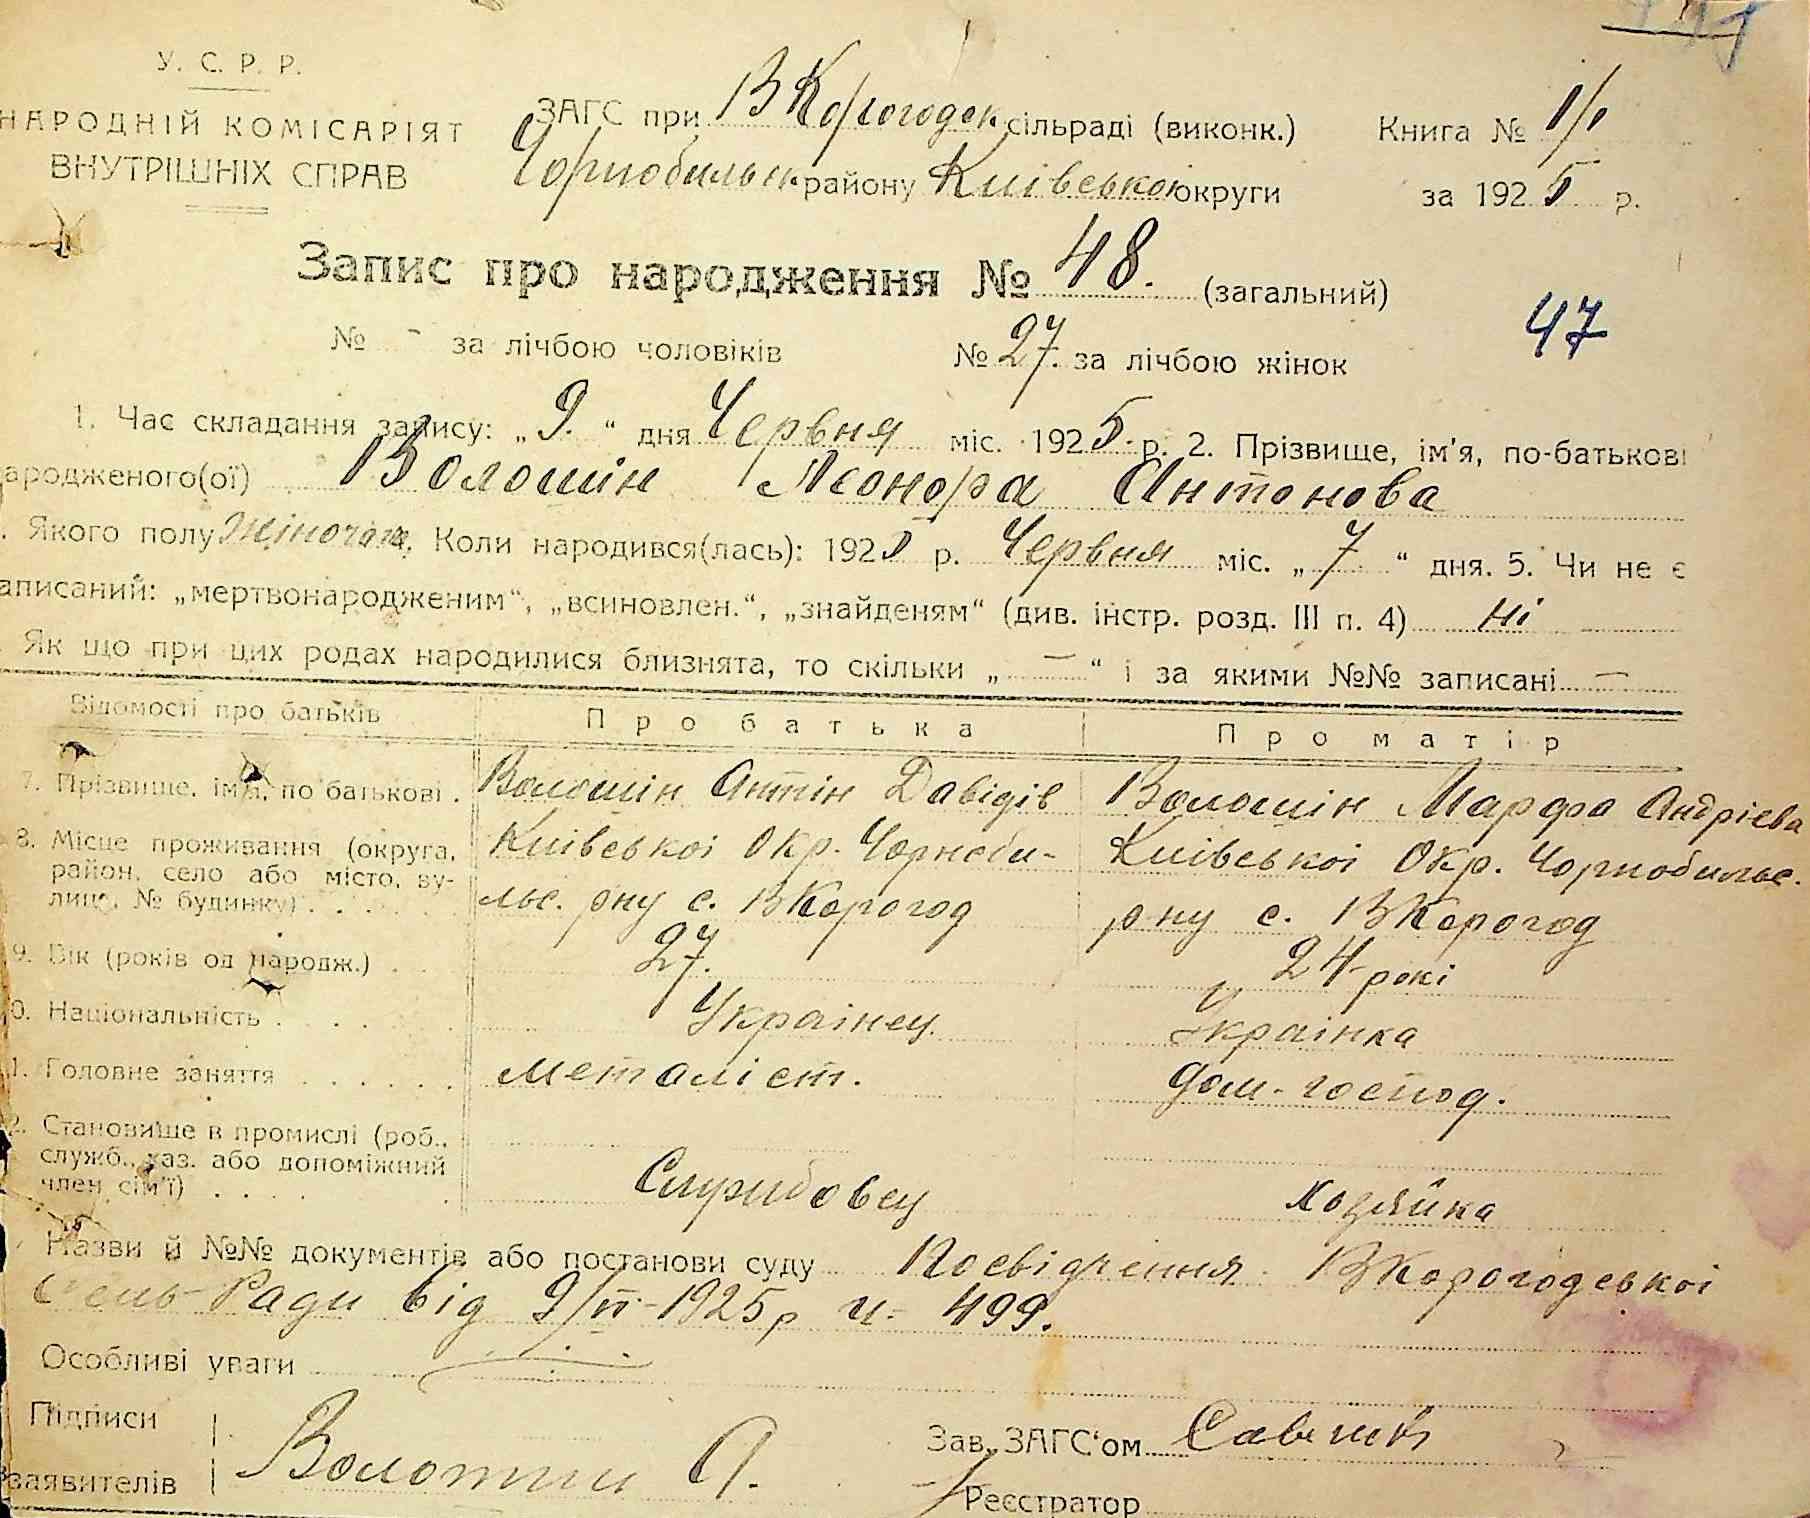 У. С. Р. Р.
НАРОДНІЙ КОМІСАРІЯТ
ВНУТРІШНІХ СПРАВ
ЗАГС при ВКорогодск сільраді (виконк.) Книга № 1/1
Чорнобильск району Київської округи за 1925 р.
Запис про народження № 48. (загальний)
47
№ - за лічбою чоловіків № 27. за лічбою жінок
1. Час складання запису: „9.“ дня Червня міс. 1925 р. 2. Прізвище, ім'я, по-батькові
ародженого(ої) Волошін Леонора Антонова
. Якого полу Жіночого 4. Коли народився(лась): 1925 р. Червня міс. „7“ дня. 5. Чи не є
аписаний: „мертвонародженим“, „всиновлен.“, „знайденям“ (див. інстр. розд. III п. 4) Ні
Як що при цих родах народилися близнята, то скільки „—“ і за якими №№ записані —
Відомості про батьків Про батька Про матір
7. Прізвище, ім'я, по батькові . Волошін Антін Давідів Волошін Марфа Андрієва
8. Місце проживання (округа, район, село або місто, вулиця, № будинку) Київськоі Окр. Чорноби- Київськоі Окр. Чорнобильс.
льс. рну с. ВКорогод рну с. ВКорогод
9. Вік (років од народж.) 27. 24 рокі
0. Національність Украінец Украінка
1. Головне заняття металіст. дом-господ.
2. Становище в промислі (роб.,
служб., хаз. або допоміжний
член сім'ї) Службовец хозяйка
Назви й №№ документів або постанови суду Посвідчення ВКорогодськоі
Сель-Ради від 9/VI-1925р ч- 499.
Особливі уваги
Підписи
заявителів Волошин А.
Зав. ЗАГС'ом
Реєстратор